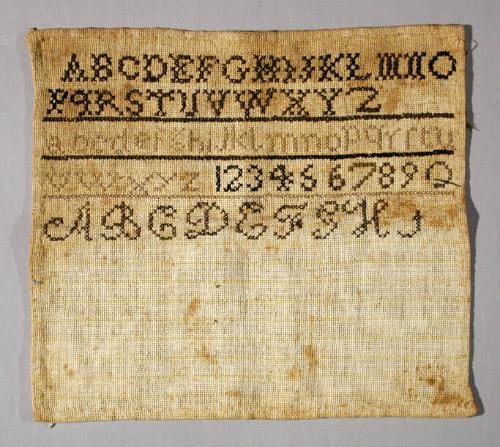 ABCDEFGHIJKLMNO
PQRSTUVWXYZ
abcdefghijklmnopqrstu
vwxyz 1234567890
ABCDEFGHI